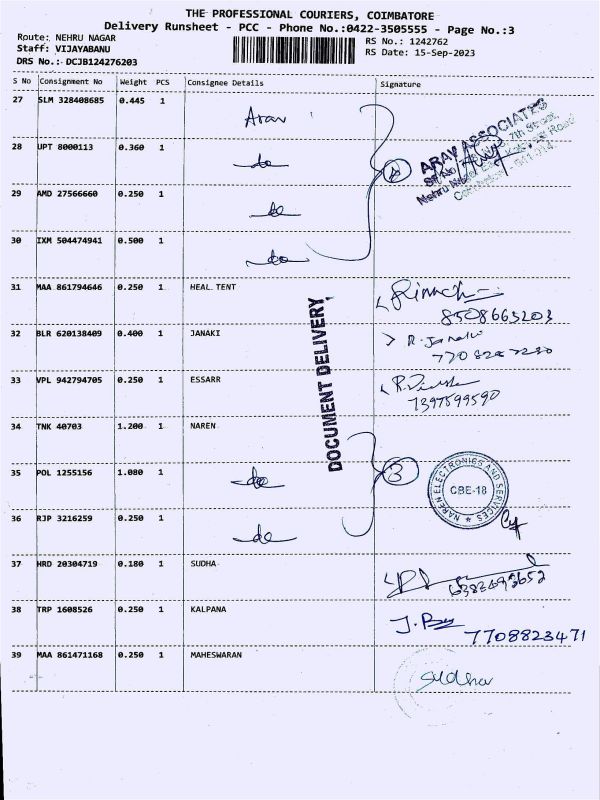 THE PROFESSIONAL COURIERS, COIMBATORE
Delivery Runsheet - PCC - Phone No.:0422-3505555 - Page No.:3
Route: NEHRU NAGAR
RS No.: 1242762
Staff: VIJAYABANU
RS Date: 15-Sep-2023
DRS No.: DCJB124276203
S No Consignment No Weight PCS Consignee Details Signature
27 SLM 328408685 0.445 1 Arav
ARAV ASSOCIATES
7th Street
Nehru Nagar
Road
Coimbatore - 641 014
28 UPT 8000113 0.360 1 do
29 AMD 27566660 0.250 1 do
30 IXM 504474941 0.500 1 do
31 MAA 861794646 0.250 1 HEAL TENT
8508663203
DOCUMENT DELIVERY
32 BLR 620138409 0.400 1 JANAKI R. Janaki
33 VPL 942794705 0.250 1 ESSARR
1397599590
34 TNK 40703 1.200 1 NAREN
35 POL 1255156 1.080 1 do 3
NAREN ELECTRONICS AND SERVICES
CBE-18
36 RJP 3216259 0.250 1 do
37 HRD 20304719 0.180 1 SUDHA
38 TRP 1608526 0.250 1 KALPANA
7708823471
39 MAA 861471168 0.250 1 MAHESWARAN